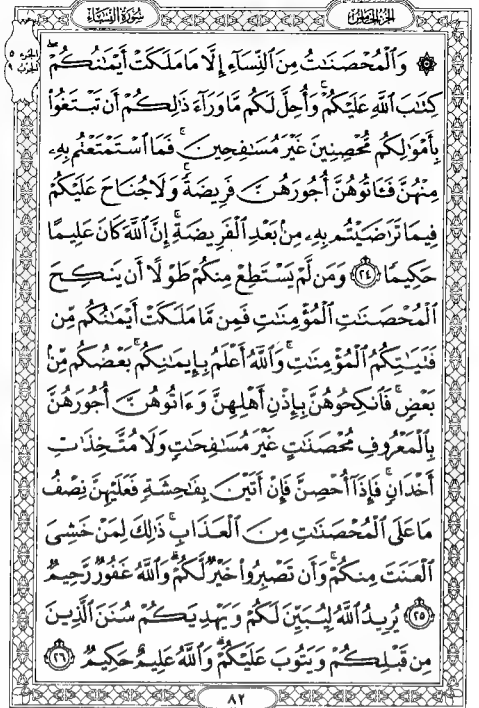 سُورَةُ النِّسَاءِ
الجُزءُ الخَامِسُ
الجزء ٥
الحزب ٩
۞ وَٱلْمُحْصَنَـٰتُ مِنَ ٱلنِّسَآءِ إِلَّا مَا مَلَكَتْ أَيْمَـٰنُكُمْ ۖ
كِتَـٰبَ ٱللَّهِ عَلَيْكُمْ ۚ وَأُحِلَّ لَكُم مَّا وَرَآءَ ذَٰلِكُمْ أَن تَبْتَغُوا۟
بِأَمْوَٰلِكُم مُّحْصِنِينَ غَيْرَ مُسَـٰفِحِينَ ۚ فَمَا ٱسْتَمْتَعْتُم بِهِۦ
مِنْهُنَّ فَـَٔاتُوهُنَّ أُجُورَهُنَّ فَرِيضَةً ۚ وَلَا جُنَاحَ عَلَيْكُمْ
فِيمَا تَرَٰضَيْتُم بِهِۦ مِنۢ بَعْدِ ٱلْفَرِيضَةِ ۚ إِنَّ ٱللَّهَ كَانَ عَلِيمًا
حَكِيمًا ٢٤ وَمَن لَّمْ يَسْتَطِعْ مِنكُمْ طَوْلًا أَن يَنكِحَ
ٱلْمُحْصَنَـٰتِ ٱلْمُؤْمِنَـٰتِ فَمِن مَّا مَلَكَتْ أَيْمَـٰنُكُم مِّن
فَتَيَـٰتِكُمُ ٱلْمُؤْمِنَـٰتِ ۚ وَٱللَّهُ أَعْلَمُ بِإِيمَـٰنِكُم ۚ بَعْضُكُم مِّنۢ
بَعْضٍ ۚ فَٱنكِحُوهُنَّ بِإِذْنِ أَهْلِهِنَّ وَءَاتُوهُنَّ أُجُورَهُنَّ
بِٱلْمَعْرُوفِ مُحْصَنَـٰتٍ غَيْرَ مُسَـٰفِحَـٰتٍ وَلَا مُتَّخِذَٰتِ
أَخْدَانٍ ۚ فَإِذَآ أُحْصِنَّ فَإِنْ أَتَيْنَ بِفَـٰحِشَةٍ فَعَلَيْهِنَّ نِصْفُ
مَا عَلَى ٱلْمُحْصَنَـٰتِ مِنَ ٱلْعَذَابِ ۚ ذَٰلِكَ لِمَنْ خَشِىَ
ٱلْعَنَتَ مِنكُمْ ۚ وَأَن تَصْبِرُوا۟ خَيْرٌ لَّكُمْ ۗ وَٱللَّهُ غَفُورٌ رَّحِيمٌ
٢٥ يُرِيدُ ٱللَّهُ لِيُبَيِّنَ لَكُمْ وَيَهْدِيَكُمْ سُنَنَ ٱلَّذِينَ
مِن قَبْلِكُمْ وَيَتُوبَ عَلَيْكُمْ ۗ وَٱللَّهُ عَلِيمٌ حَكِيمٌ ٢٦
٨٢